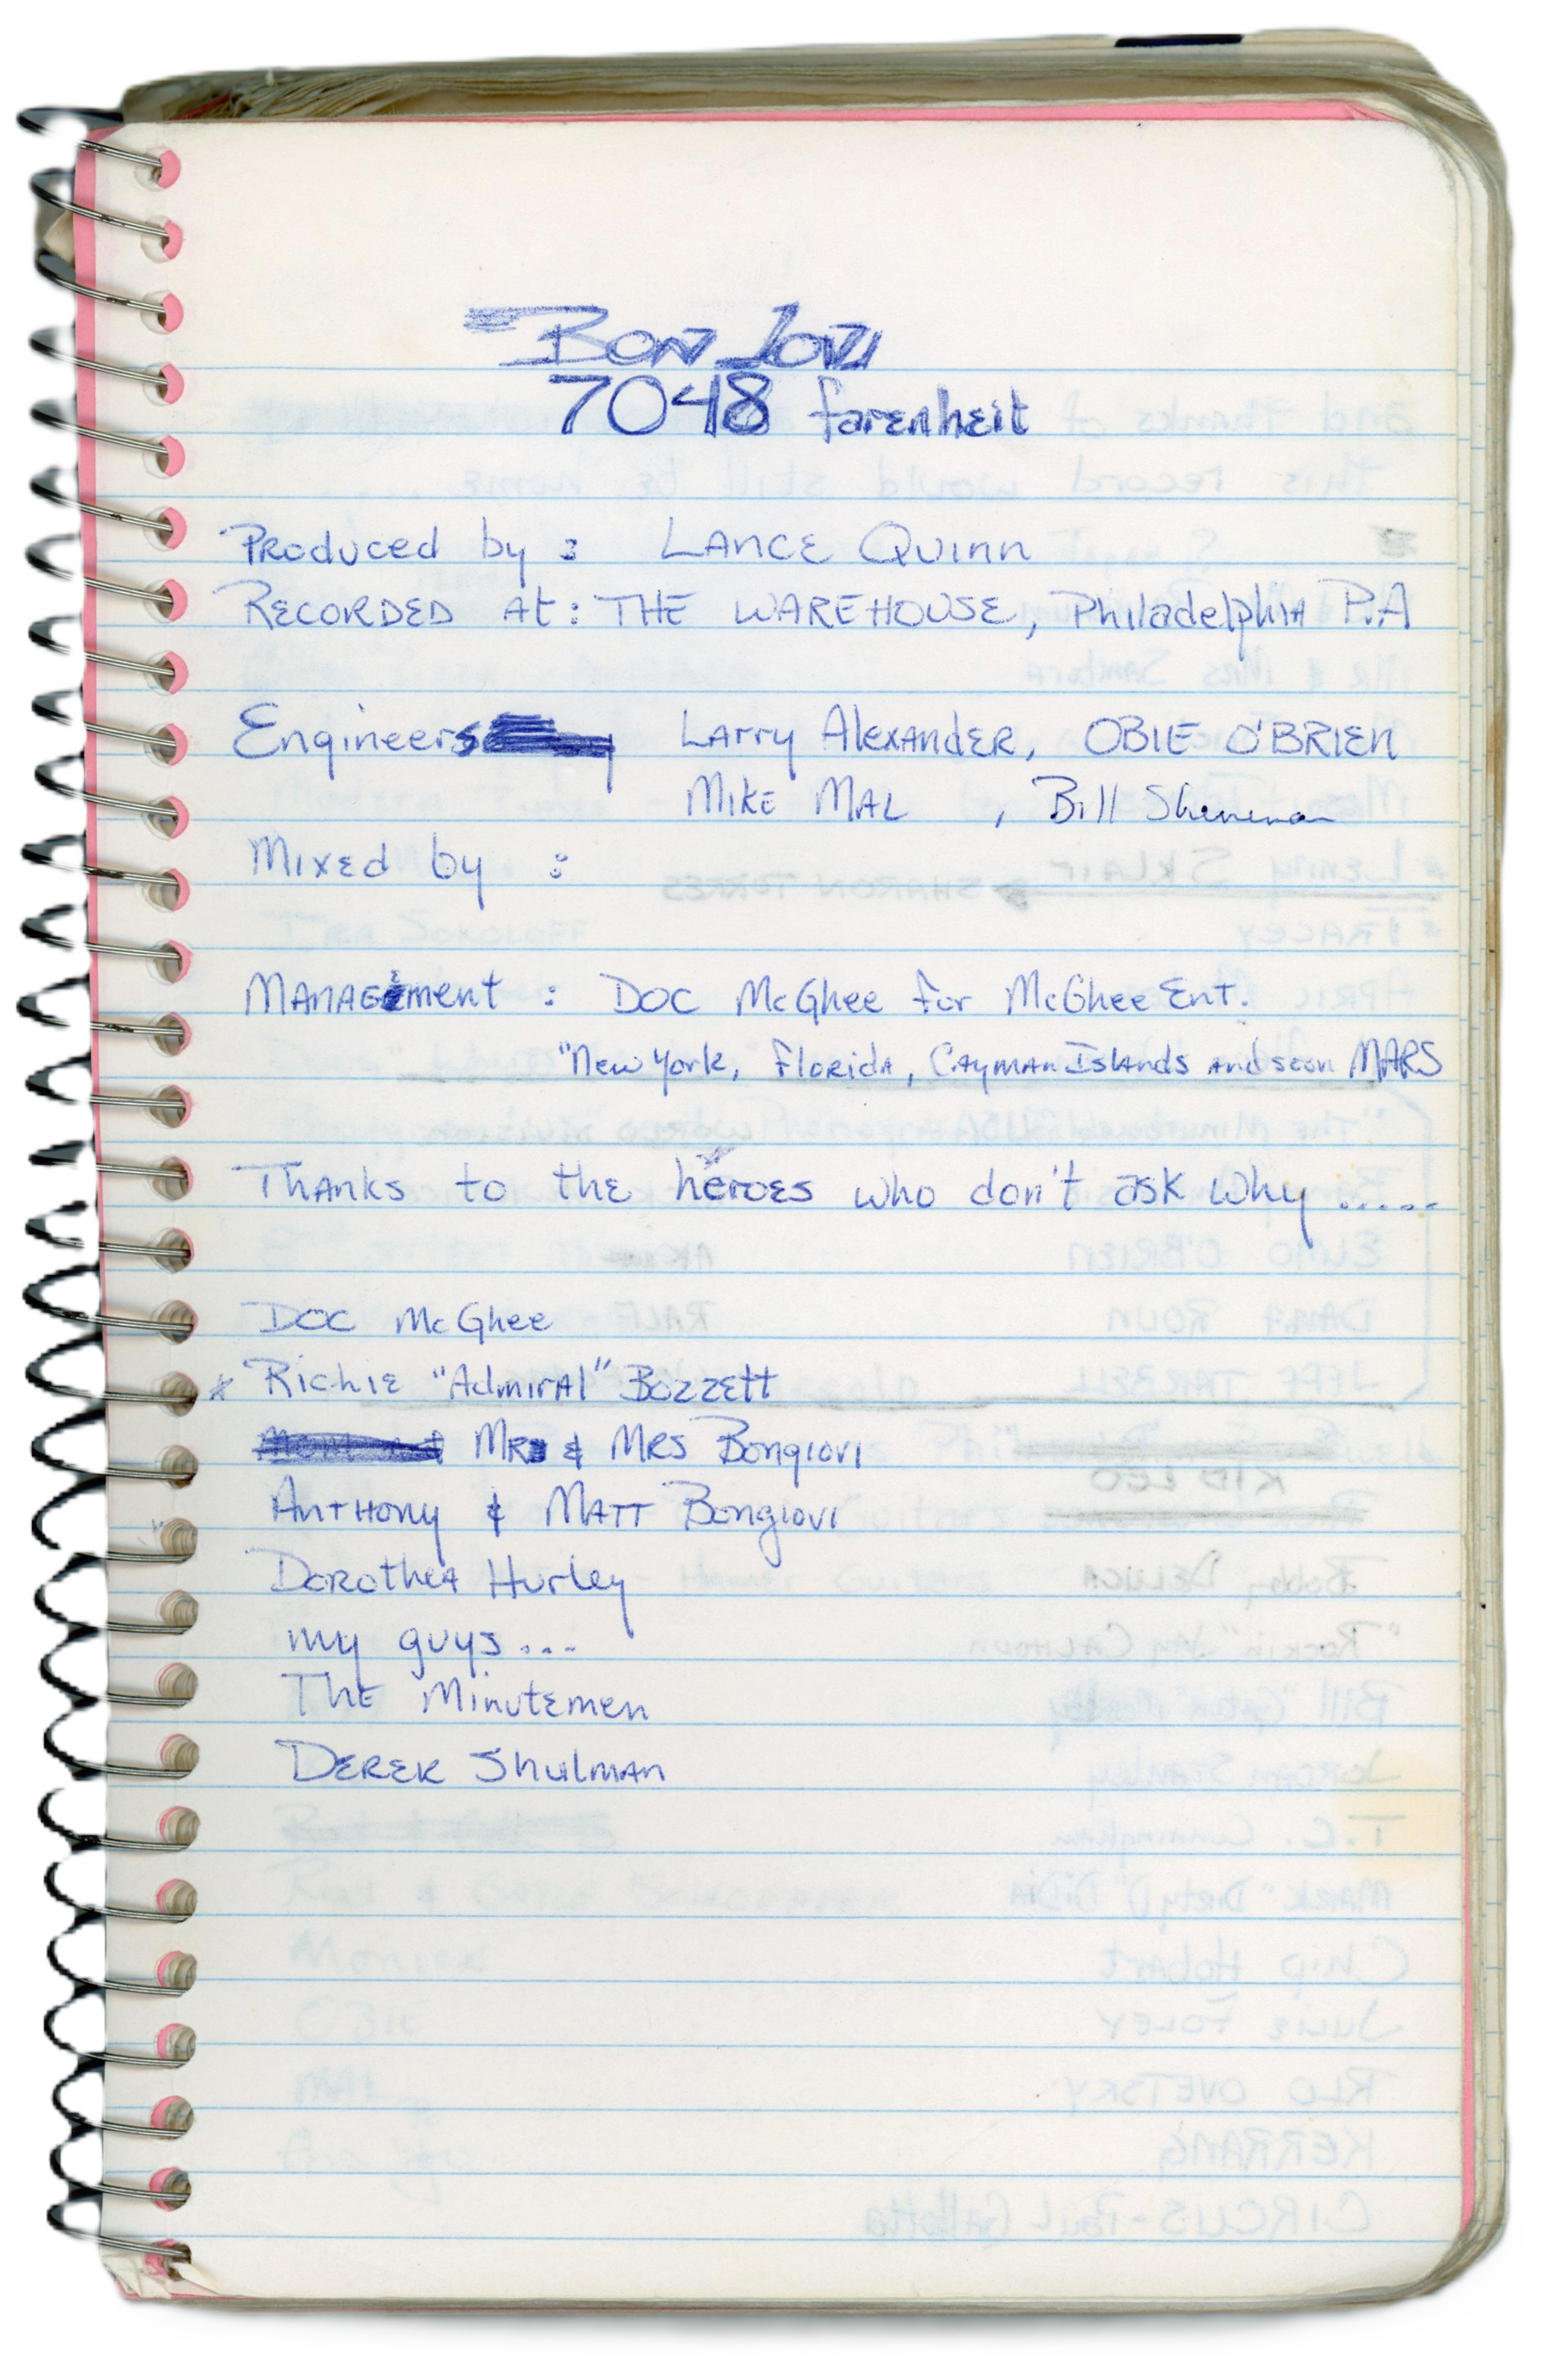 BON JOVI
7048 farenheit
Produced by : LANCE Quinn
RECORDED At : THE WAREHOUSE, Philadelphia P.A
Engineers Larry Alexander, OBIE O'BRIEN
MIKE MAL , Bill
Mixed by :
MANAGEment : DOC McGhee for McGhee Ent.
"New York, Florida, Cayman Islands and soon MARS
Thanks to the heroes who don't ask why .....
DOC McGhee
* Richie "Admiral" Bozzett
MR & MRS Bongiovi
Anthony & MATT Bongiovi
Dorothea Hurley
my guys ...
The Minutemen
DEREK Shulman